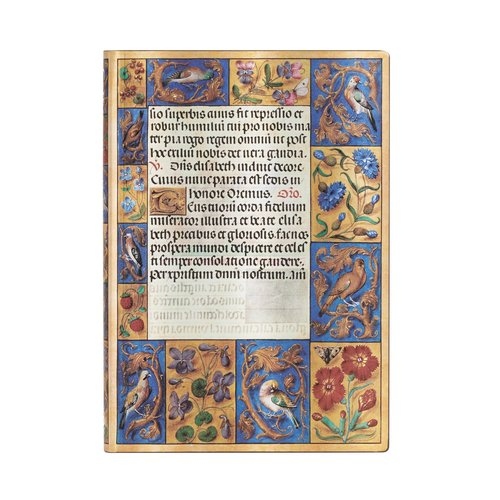 sio superbis cuius fit repressio et
robur humiliū tu pro nobis ma
ter pia rogo regem omniū ut post
hec exilii nobis det vera gaudia.
V. Dn̄s elisabeth induit decore
Cuius nunc parata est sedis in
honore Oremus. Oro.
Tuorū corda fidelium
miserator illustra et beate elisa
beth precibus et gloriosis fac nos
prospera mundi despicere et celes
ti semper consolatione gaudere.
per xpristum dnm̄ nostrum. am